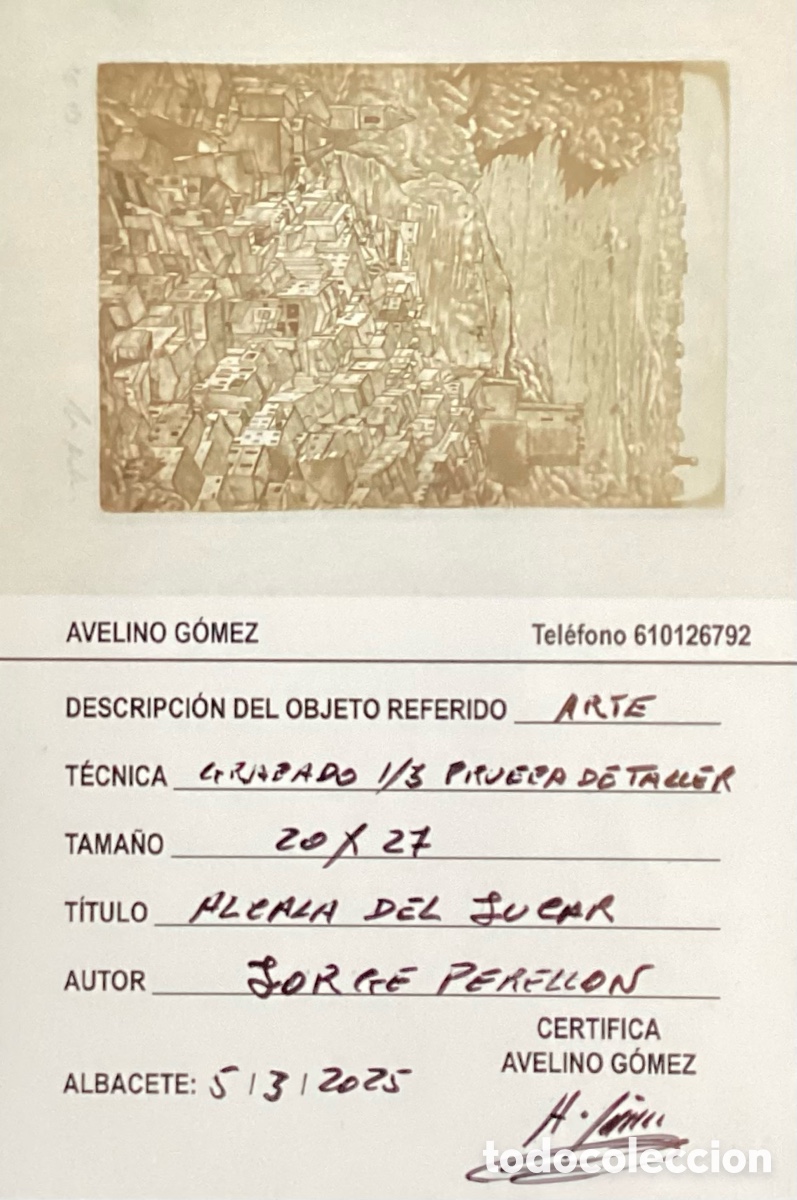 AVELINO GÓMEZ Teléfono 610126792
DESCRIPCIÓN DEL OBJETO REFERIDO ARTE
TÉCNICA GRABADO 1/3 PRUEBA DE TALLER
TAMAÑO 20 X 27
TÍTULO ALCALA DEL JUCAR
AUTOR JORGE PERELLON
CERTIFICA
AVELINO GÓMEZ
ALBACETE: 5 / 3 / 2025
todocoleccion